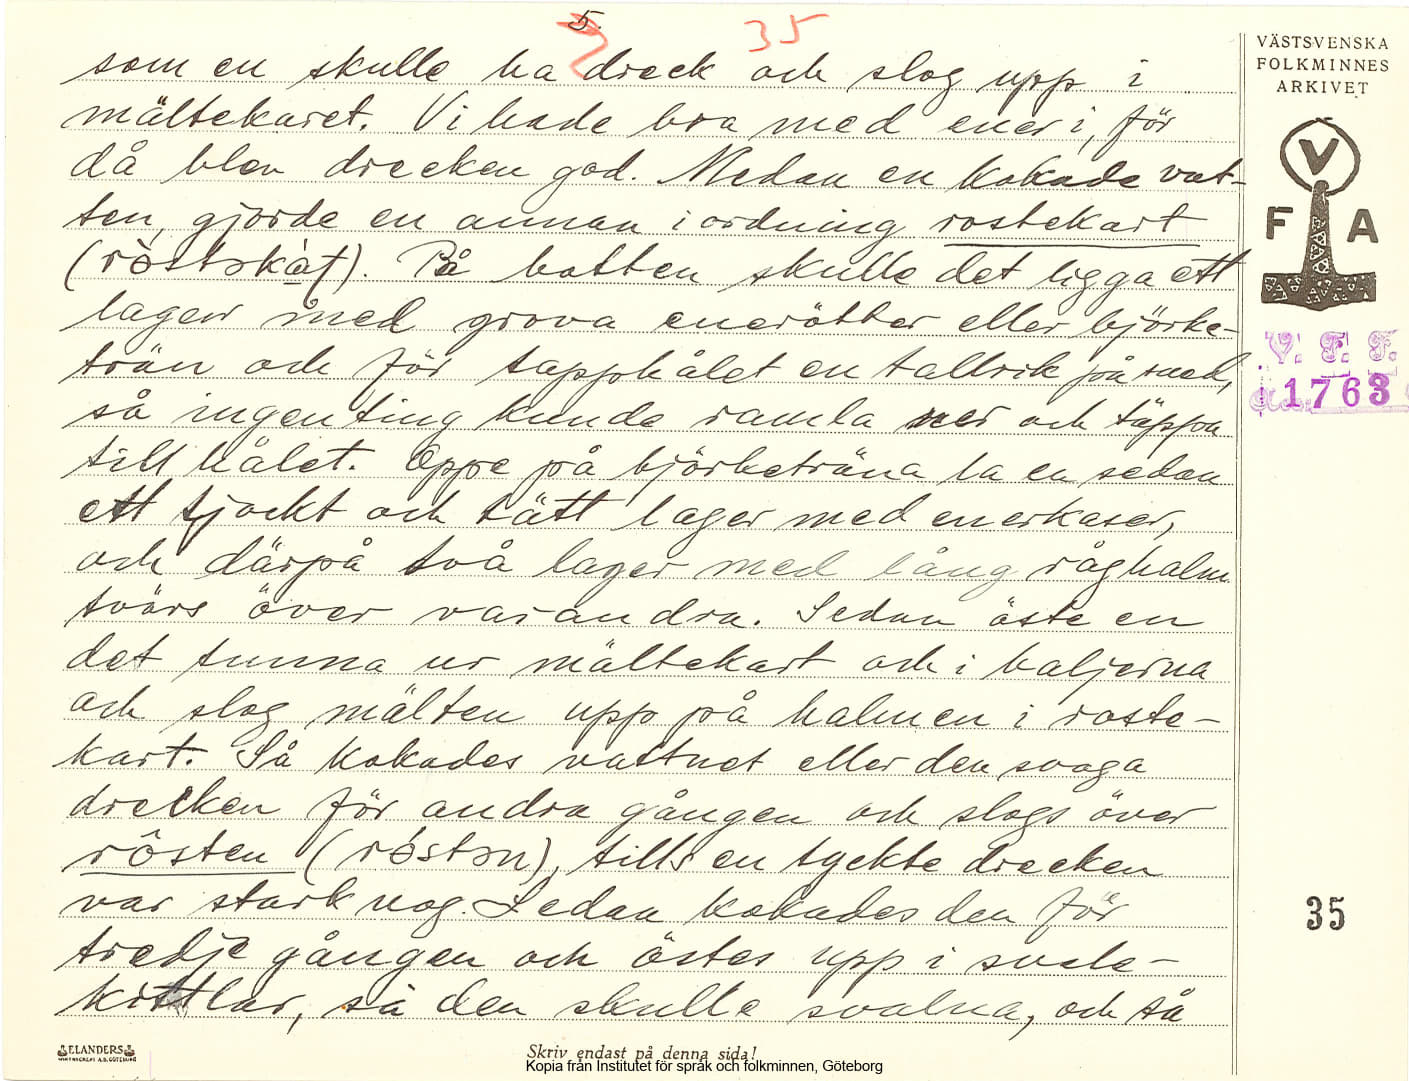 5.
35
som en skulle ha dreck och slog upp i
mältekaret. Vi hade bra med ener i, för
då blev drecken god. Medan en kokade vat-
ten, gjorde en annan i ordning rostekart
På botten skulle det ligga ett
lager med grova enerötter eller björke-
trän och för tapphålet en tallrik på sned,
så ingenting kunde ramla ner och täppa
till hålet. Oppe på björketräna la en sedan
ett tjockt och tätt lager med enerkaser,
och därpå två lager med lång råghalm
tvärs över varandra. Sedan öste en
det tunna ur mältekart och i baljerna
och slog mälten upp på halmen i roste-
kart. Så kokades vattnet eller den svaga
drecken för andra gången och slogs över
rôsten (róstən), tills en tyckte drecken
var stark nog. Sedan kokades den för
tredje gången och östes upp i svale-
kittlar, så den skulle svalna, och så
VÄSTSVENSKA
FOLKMINNES
ARKIVET
V
F A
V. F. F.
1763
35
ELANDERS
Skriv endast på denna sida!
Kopia från Institutet för språk och folkminnen, Göteborg